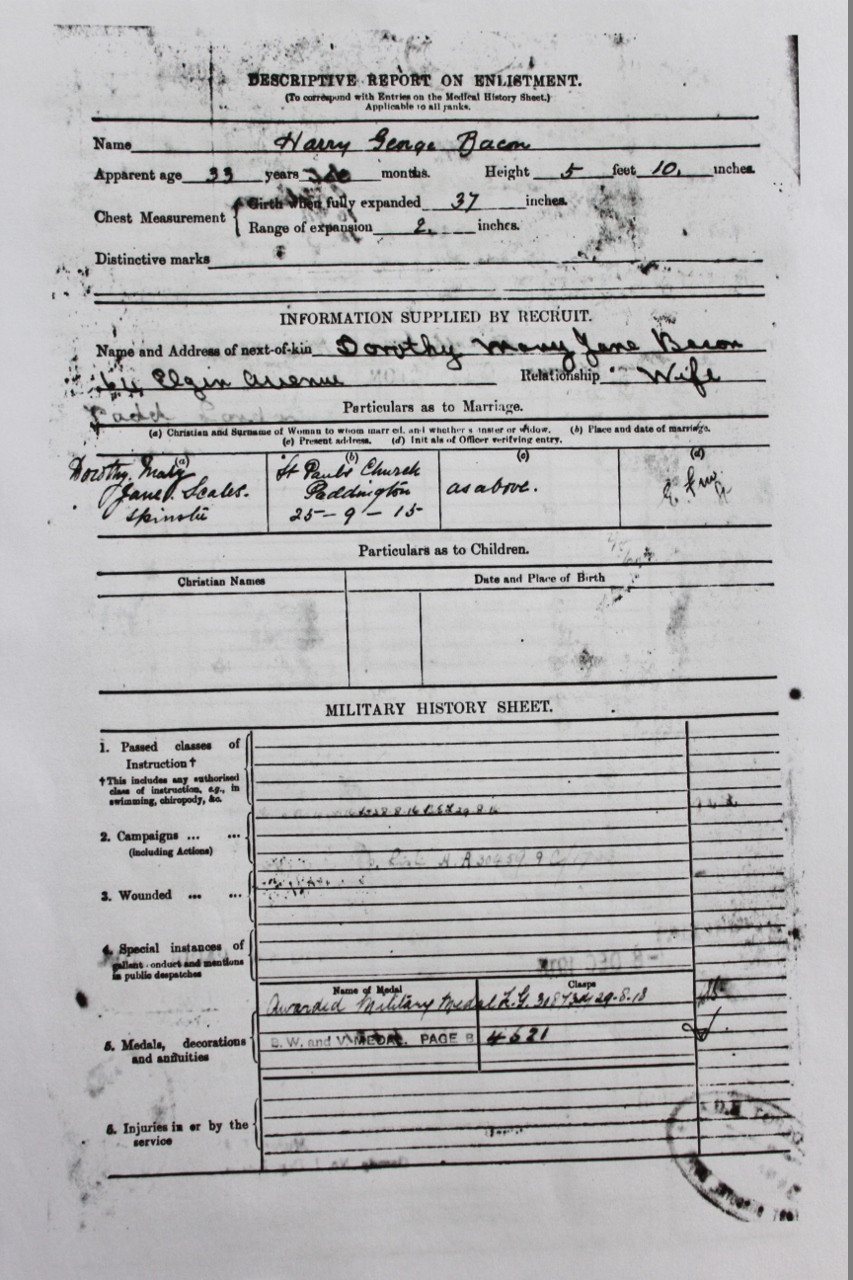 DESCRIPTIVE REPORT ON ENLISTMENT.
(To correspond with Entries on the Medical History Sheet.)
Applicable to all ranks.
Name Harry George Bacon
Apparent age 33 years months. Height 5 feet 10. inches.
Chest Measurement { Girth when fully expanded 37 inches.
Range of expansion 2. inches.
Distinctive marks
INFORMATION SUPPLIED BY RECRUIT.
Name and Address of next-of-kin Dorothy Mary Jane Bacon
64 Elgin Avenue Relationship Wife
Padd London
Particulars as to Marriage.
(a) Christian and Surname of Woman to whom married, and whether spinster or widow. (b) Place and date of marriage.
(c) Present address. (d) Initials of Officer verifying entry.
(a) (b) (c) (d)
Dorothy Mary St Pauls Church as above.
Jane Scales. Paddington
Spinster 25-9-15
Particulars as to Children.
Christian Names Date and Place of Birth
MILITARY HISTORY SHEET.
1. Passed classes of
Instruction †
† This includes any authorised
class of instruction, e.g., in
swimming, chiropody, &c.
2. Campaigns ... ...
(including Actions)
3. Wounded ... ...
4. Special instances of
gallant conduct and mentions
in public despatches
Name of Medal Clasps
Awarded Military Medal L.G. 30873 d/ 29-8-18
5. Medals, decorations
and annuities
B. W. and V. MEDAL. PAGE B 4621
6. Injuries in or by the
service